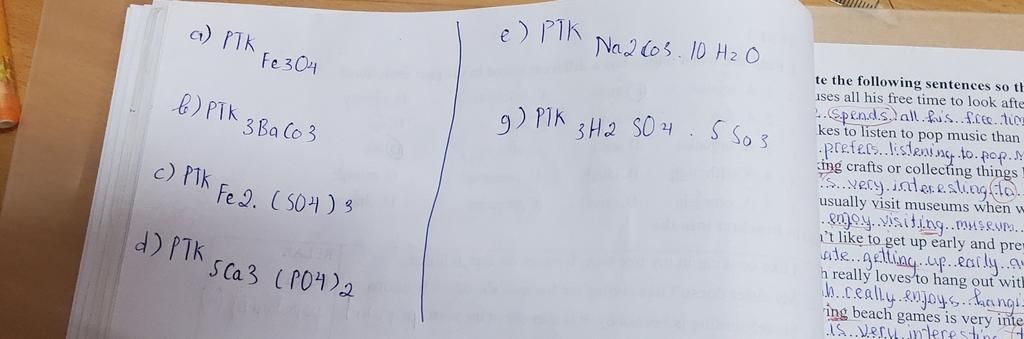 a) PTK Fe3O4
b) PTK 3BaCo3
c) PTK Fe2. (SO4)3
d) PTK 5Ca3 (PO4)2
e) PTK Na2Co3 . 10 H2O
g) PTK 3H2 SO4 . 5 So3
te the following sentences so th
uses all his free time to look afte
spends all his free tim
kes to listen to pop music than
prefers listening to pop m
king crafts or collecting things
is very interesting to
usually visit museums when w
enjoy visiting museum
n't like to get up early and pre
ate getting up early a
h really loves to hang out with
h really enjoys hangi
ing beach games is very inte
is very interesting t